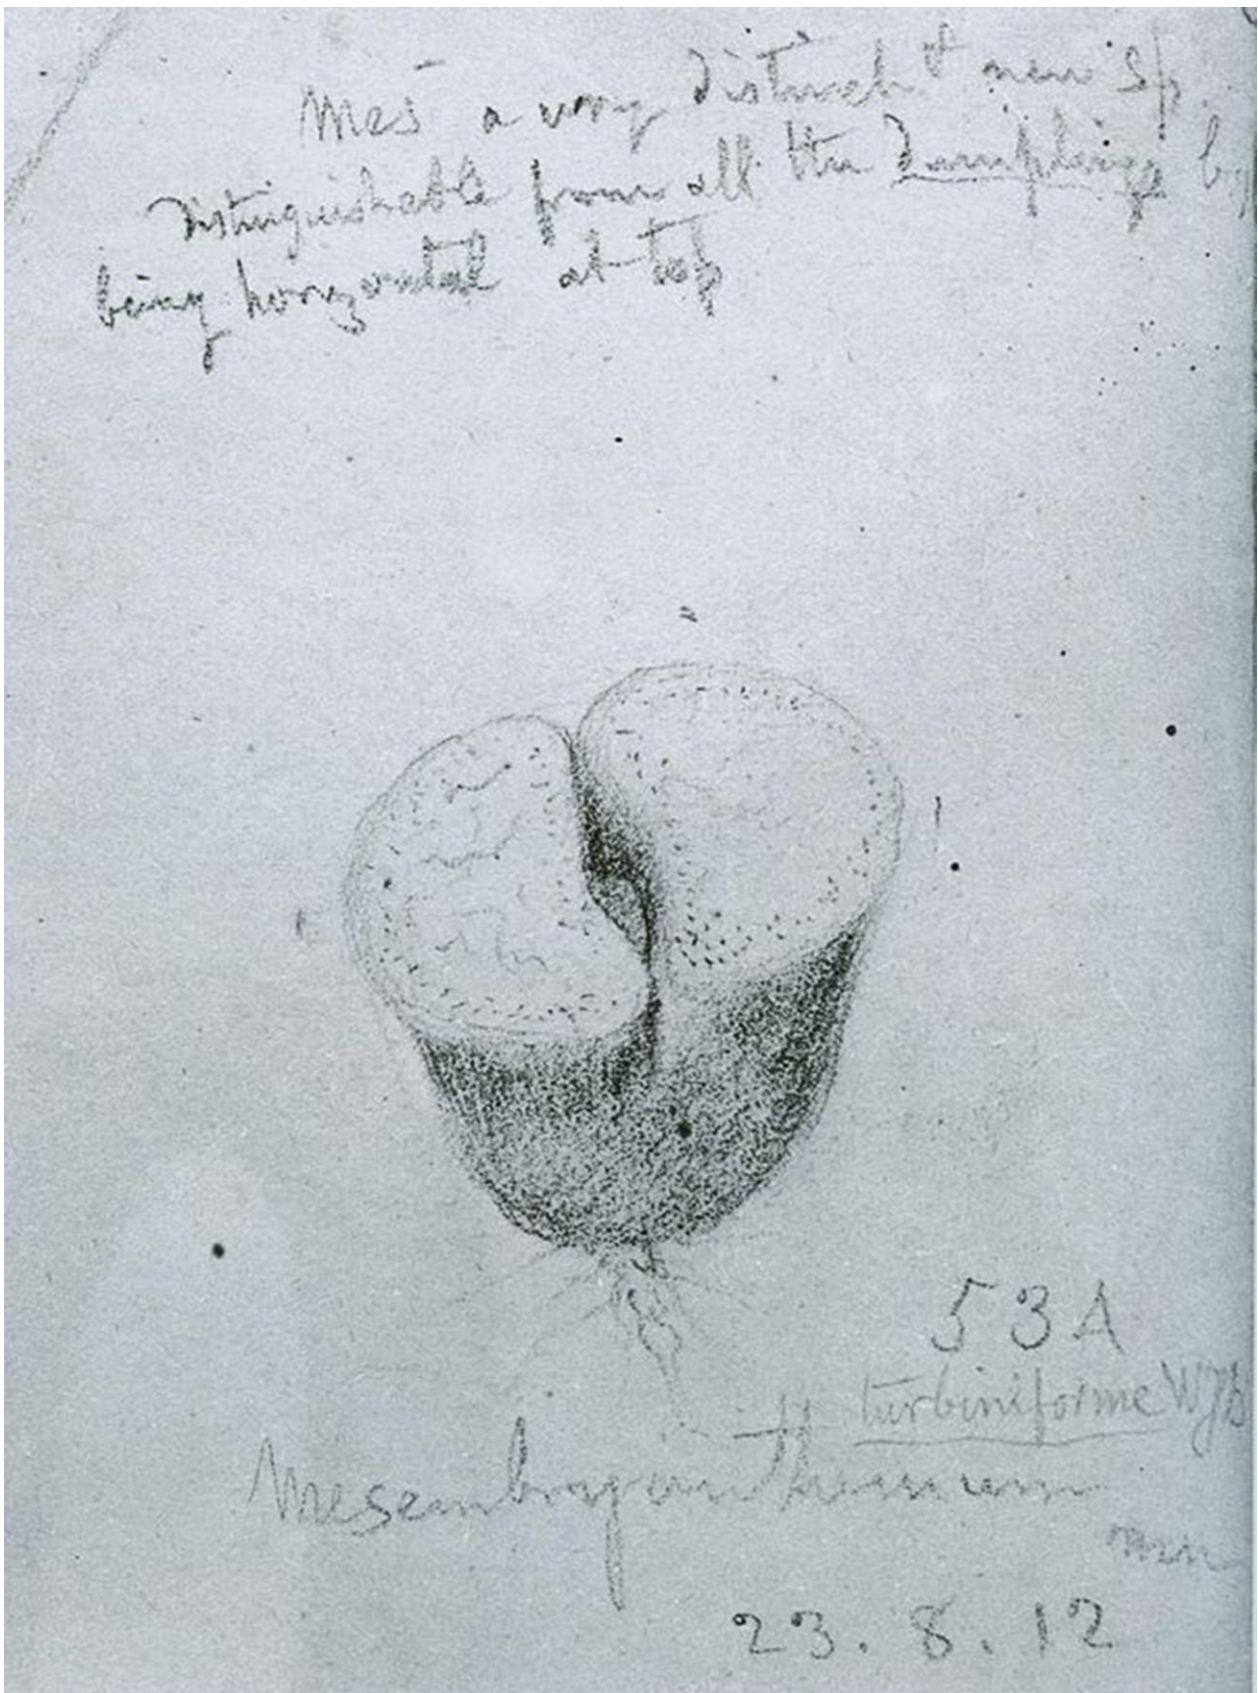 Mes a very distinct & new sp.
Distinguishable from all the Dumplings by
being horizontal at top
53A
turbiniforme WJB
Mesembryanthemum
23.8.12